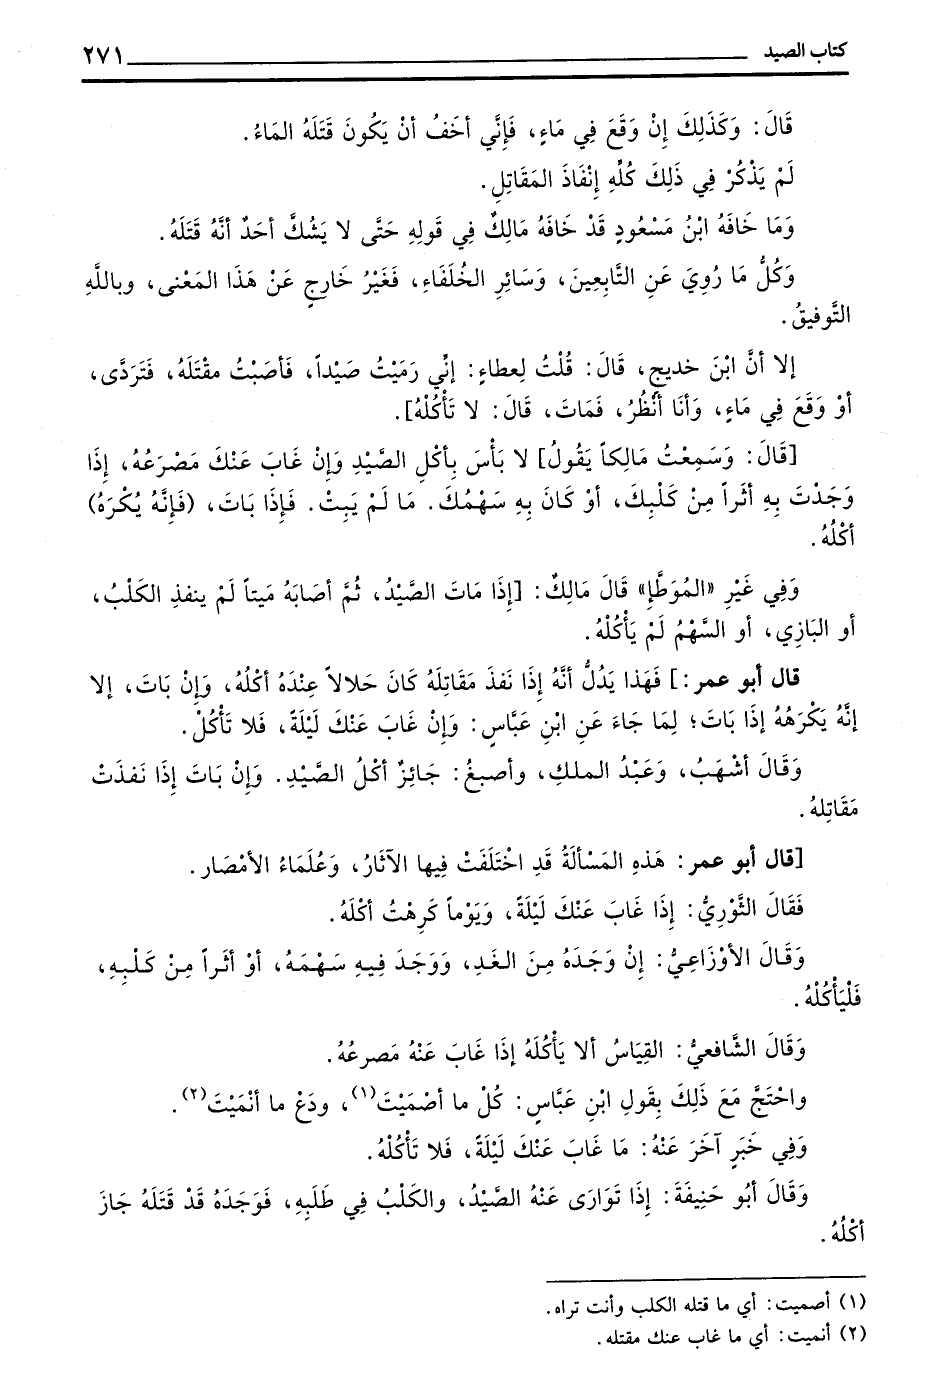 كتاب الصيد ٢٧١
قَالَ: وَكَذَلِكَ إِنْ وَقَعَ فِي مَاءٍ، فَإِنَّي أخَفُ أنْ يَكُونَ قَتَلَهُ المَاءُ.
لَمْ يَذْكُرْ فِي ذَلِكَ كُلِّهِ إِنْفَاذَ المَقَاتِلِ.
وَمَا خَافَهُ ابْنُ مَسْعُودٍ قَدْ خَافَهُ مَالِكٌ فِي قَولِهِ حَتَّى لا يَشُكَّ أحَدٌ أنَّهُ قَتَلَهُ.
وَكُلُّ مَا رُوِيَ عَنِ التَّابِعِينَ، وَسَائِرِ الخُلَفَاءِ، فَغَيْرُ خَارِجٍ عَنْ هَذَا المَعْنى، وباللَّهِ
التَّوفيقُ.
إلا أنَّ ابْنَ خديجٍ، قَالَ: قُلْتُ لِعطاءٍ: إنِّي رَمَيْتُ صَيْداً، فَأصَبْتُ مقْتَلَهُ، فَتَرَدَّى،
أوْ وَقَعَ فِي مَاءٍ، وَأنَا أنْظُرُ، فَمَاتَ، قَالَ: لا تَأْكُلْهُ].
[قَالَ: وَسَمِعْتُ مَالِكاً يَقُولُ] لا بَأْسَ بِأكْلِ الصَّيْدِ وَإنْ غَابَ عَنْكَ مَصْرَعُهُ، إذَا
وَجَدْتَ بِهِ أثَراً مِنْ كَلْبِكَ، أوْ كَانَ بِهِ سَهْمُكَ. مَا لَمْ يَبِتْ. فَإذَا بَاتَ، (فَإنَّهُ يُكْرَهُ)
أكْلُهُ.
وَفِي غَيْرِ «المُوَطَّإ» قَالَ مَالِكٌ: [إذَا مَاتَ الصَّيْدُ، ثُمَّ أصَابَهُ مَيتاً لَمْ ينفذِ الكَلْبُ،
أو البَازِي، أو السَّهْمُ لَمْ يَأْكُلْهُ.
قال أبو عمر:] فَهَذا يَدُلُّ أنَّهُ إذَا نَفذَ مَقَاتِلَهُ كَانَ حَلالاً عِنْدَهُ أكْلُهُ، وَإنْ بَاتَ، إلا
إنَّهُ يَكْرَهُهُ إذَا بَاتَ؛ لِمَا جَاءَ عَنِ ابْنِ عَبَّاسٍ: وَإنْ غَابَ عَنْكَ لَيْلَةً، فَلا تَأْكُلْ.
وَقَالَ أشْهَبُ، وَعَبْدُ الملكِ، وأصبغُ: جَائِزٌ أكْلُ الصَّيْدِ. وَإنْ بَاتَ إذَا نَفذَتْ
مَقَاتِلهُ.
[قال أبو عمر: هَذهِ المَسألَةُ قَدِ اخْتَلَفَتْ فِيها الآثَارُ، وَعُلَمَاءُ الأمْصَار.
فَقَالَ الثَّوْرِيُّ: إذَا غَابَ عَنْكَ لَيْلَةً، وَيَوْماً كَرِهْتُ أكْلَهُ.
وَقَالَ الأوْزَاعِيُّ: إنْ وَجَدَهُ مِنَ الغَدِ، وَوَجَدَ فِيهِ سَهْمَهُ، أوْ أثَراً مِنْ كَلْبِهِ،
فَلْيَأْكُلْهُ.
وَقَالَ الشَّافعيُّ: القِيَاسُ ألا يَأْكُلَهُ إذَا غَابَ عَنْهُ مَصرعُهُ.
واحْتَجَّ مَعَ ذَلِكَ بِقَولِ ابْنِ عَبَّاسٍ: كُلْ ما أصْمَيْتَ(١)، ودَعْ ما أنْمَيْتَ(٢).
وَفِي خَبَرٍ آخَرَ عَنْهُ: مَا غَابَ عَنْكَ لَيْلَةً، فَلا تَأْكُلْهُ.
وَقَالَ أبُو حَنِيفَةَ: إذَا تَوَارَى عَنْهُ الصَّيْدُ، والكَلْبُ فِي طَلَبِهِ، فَوَجَدَهُ قَدْ قَتَلَهُ جَازَ
أكْلُهُ.
(١) أصميت: أي ما قتله الكلب وأنت تراه.
(٢) أنميت: أي ما غاب عنك مقتله.